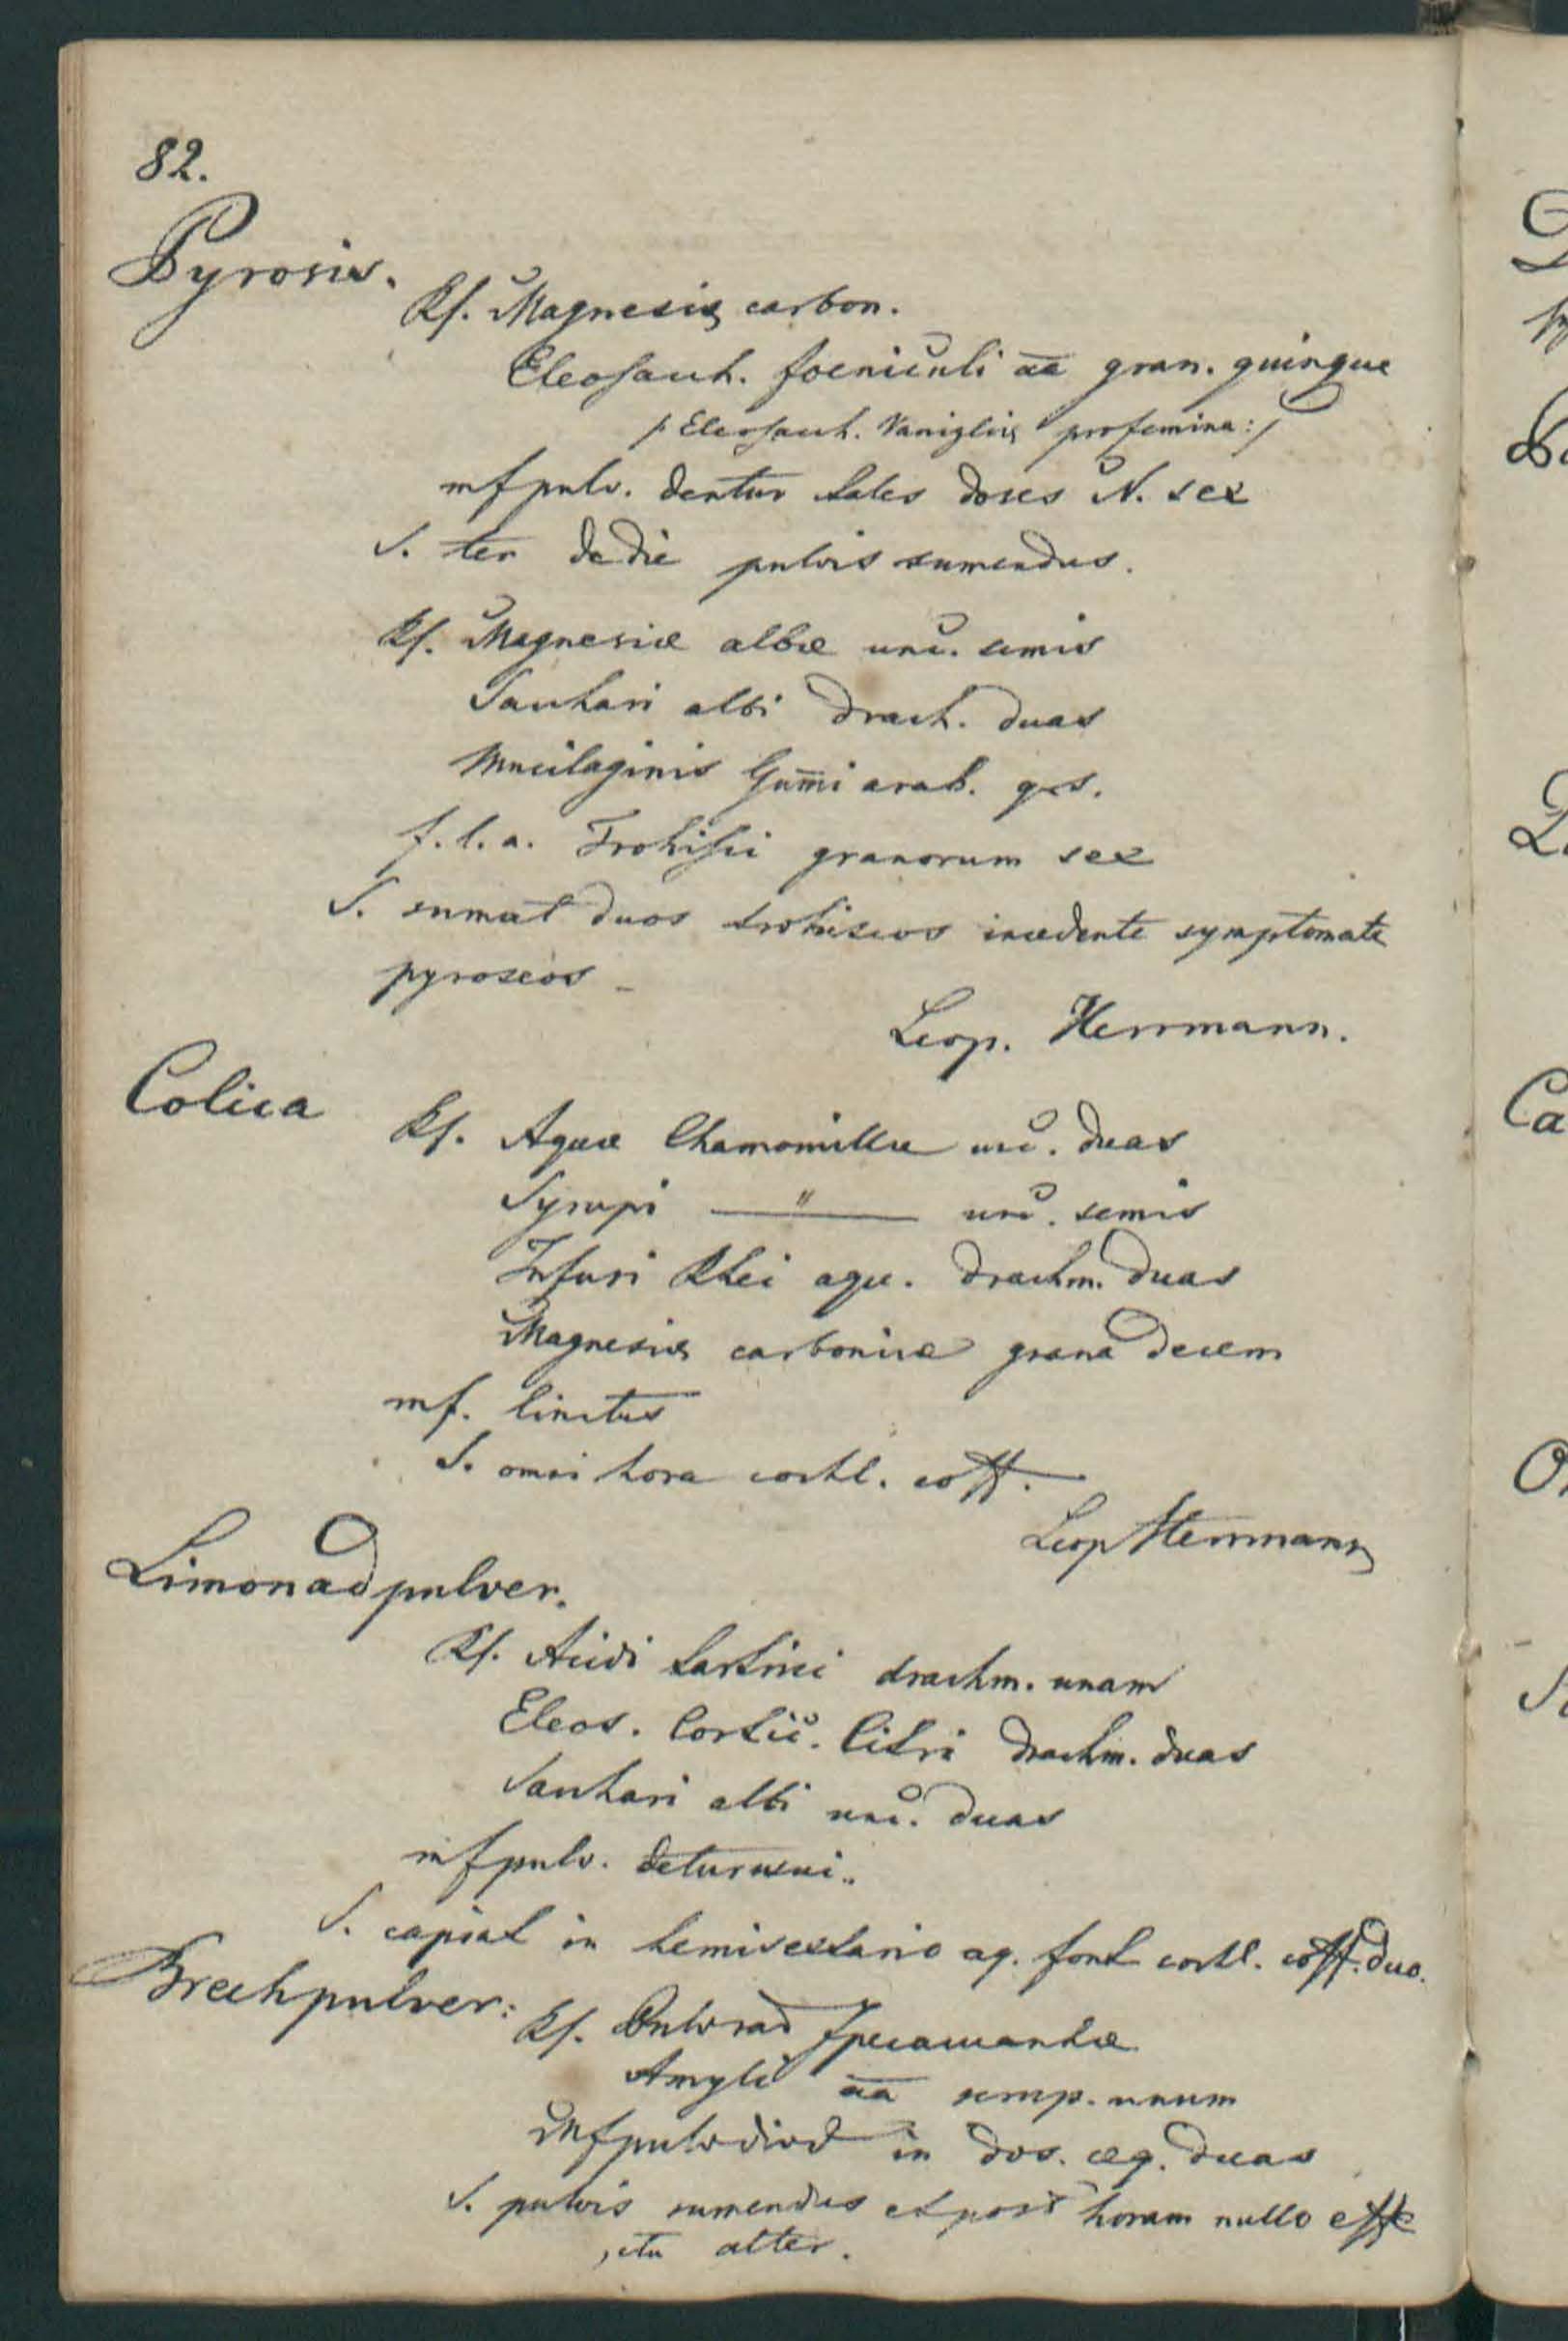 82.
Pyrosis.
Rf. Magnesiæ carbon.
Eleosach. foeniculi aa gran. quinque
/: Eleosach. Vanigliæ pro femina :/
mf pulv. dentur tales doses N. sex
S. ter de die pulvis sumendus.
Rf. Magnesiæ albæ unc. semis
Sacchari albi drach. duas
Mucilaginis Gum̄i arab. q.s.
f. l. a. Trochisci granorum sex
S. sumat duos trochiscos incedente symptomate
pyroseos
Leop. Herrmann.
Colica
Rf. Aquæ Chamomillæ unc. duas
Syrupi — " — unc. semis
Infusi Rhei aqu. drachm. duas
Magnesiæ carbonicæ grana decem
mf. linctus
S. omni hora cochl. coff.
Leop Herrmann
Limonadpulver.
Rf. Acidi tartrici drachm. unam
Eleos. Cortic. Citri drachm. duas
Sacchari albi unc. duas
mf pulv. detur usui.
S. capiat in hemisextario aq. font cochl. coff. duo.
Brechpulver:
Rf. Pulv rad Ipecacuanhæ
Amyli aa scrup. unum
Mf pulv divid in dos. æq. duas
S. pulvis sumendus et post horam nullo effe
ctu alter.
D
Ca
O